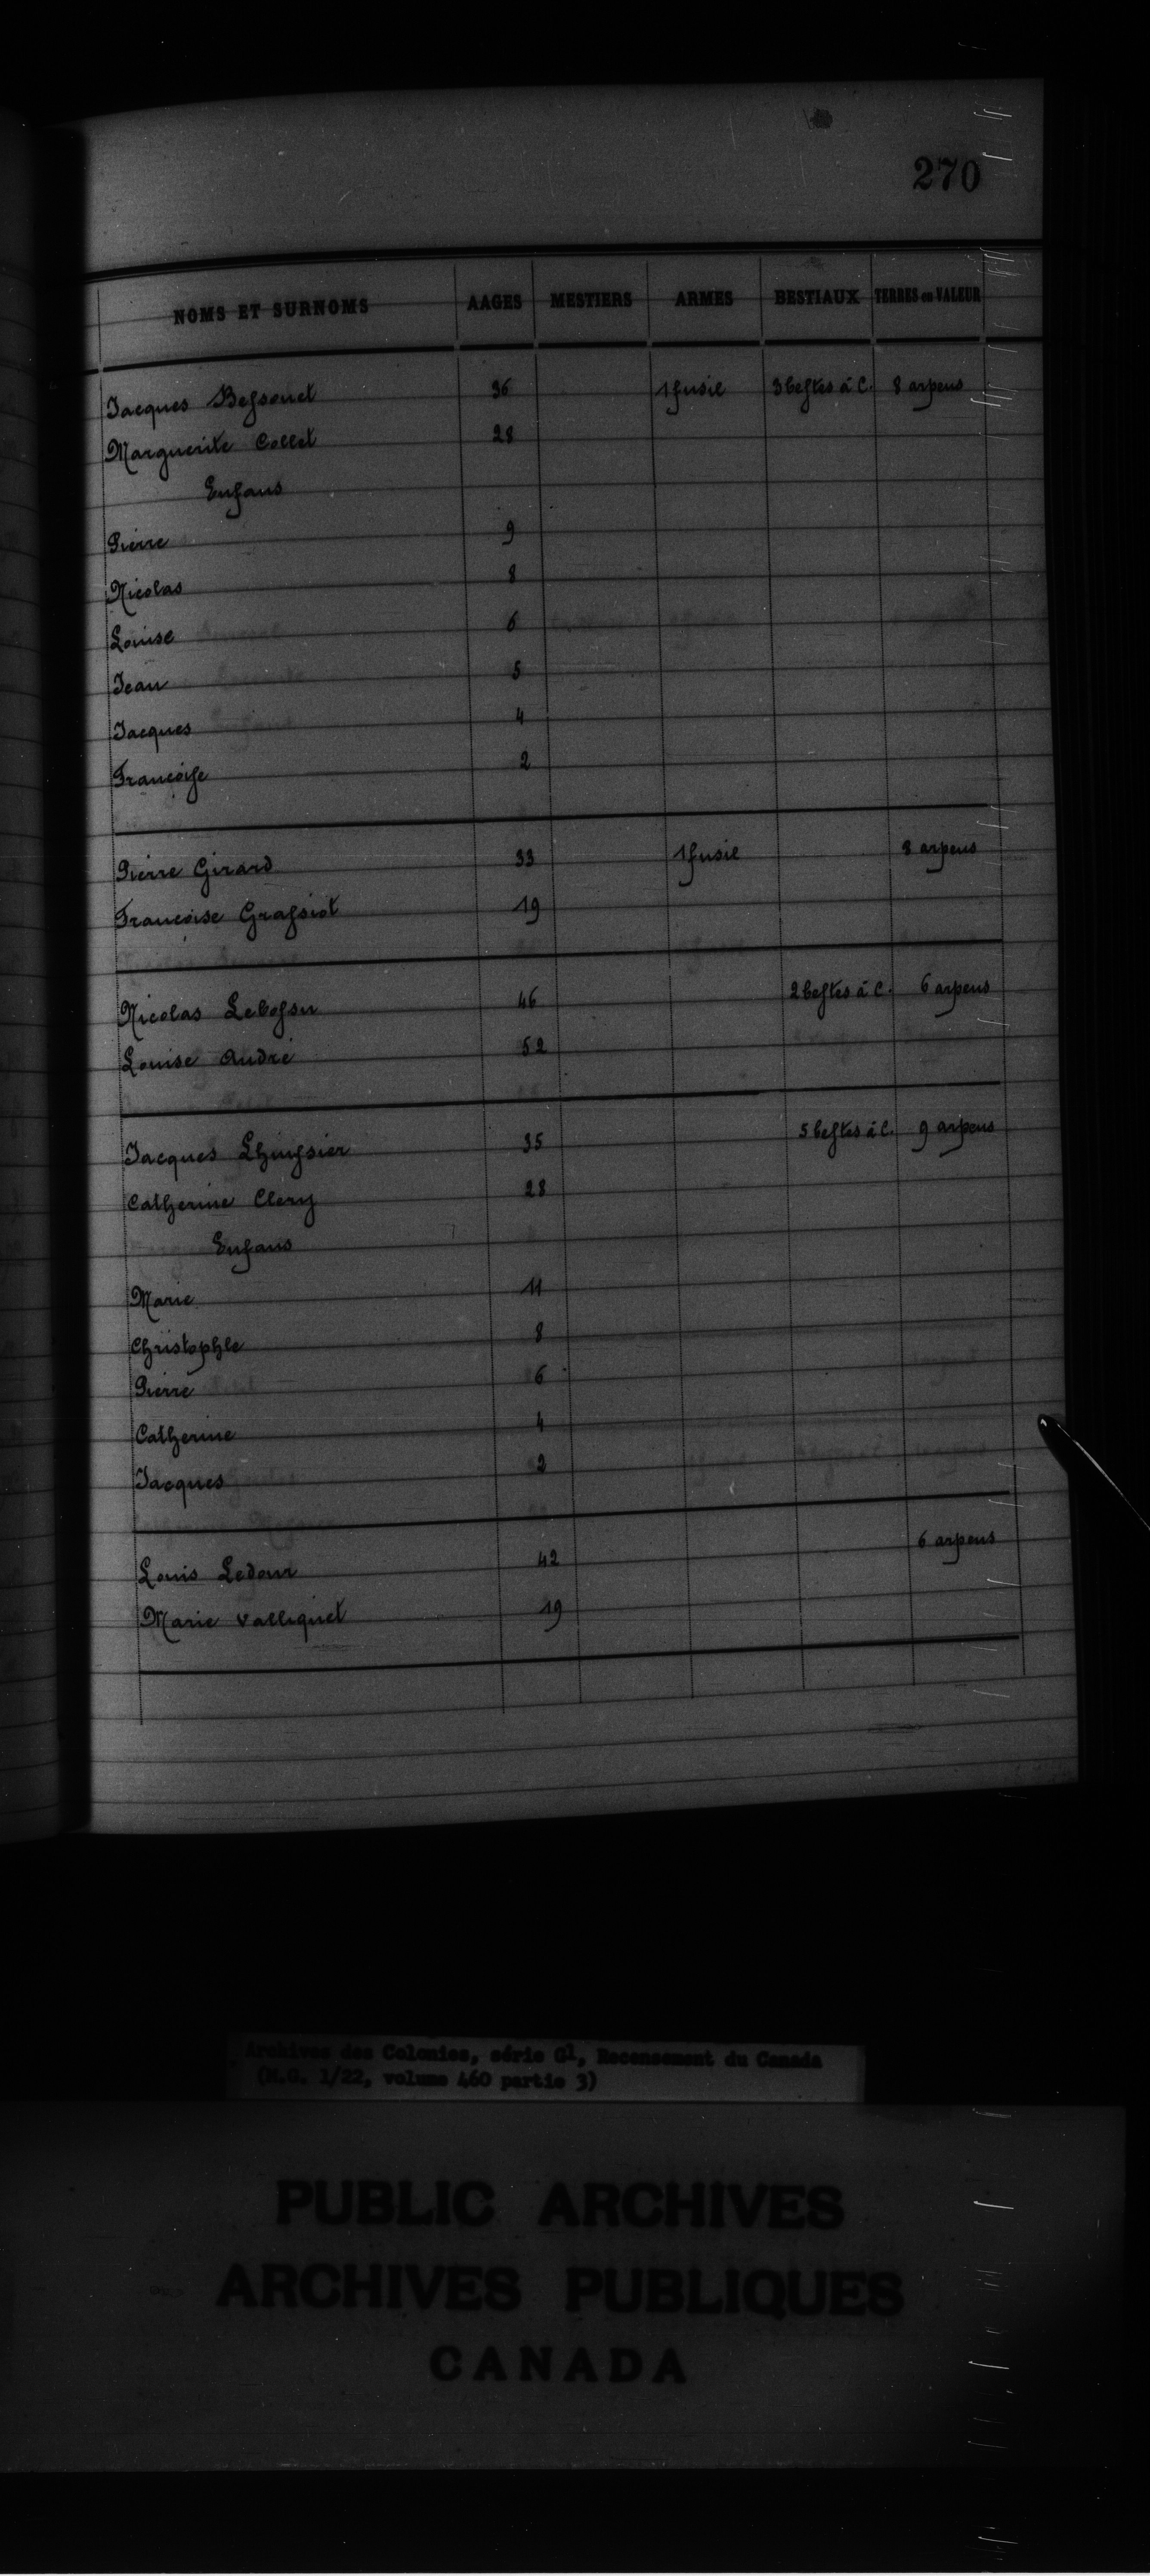 270
NOMS ET SURNOMS AAGES MESTIERS ARMES BESTIAUX TERRES en VALEUR
Jacques Beſsonet 36 1 fusil 3 beſtes à C. 8 arpens
Marguerite Collet 28
Enfans
Pierre 9
Nicolas 8
Louise 6
Jean 5
Jacques 4
Françoiſe 2
Pierre Girard 33 1 fusil 8 arpens
Françoise Graſsiot 19
Nicolas 46 2 beſtes à C. 6 arpens
Louise André 52
Jacques Lhuiſsier 35 5 beſtes à C. 9 arpens
Catherine Clery 28
Enfans
Marie 11
Christophle 8
Pierre 6
Catherine 4
Jacques 2
Louis Ledoux 42 6 arpens
Marie Valliquet 19
Archives des Colonies, série G1, Recensement du Canada
(M.G. 1/22, volume 460 partie 3)
PUBLIC ARCHIVES
ARCHIVES PUBLIQUES
CANADA